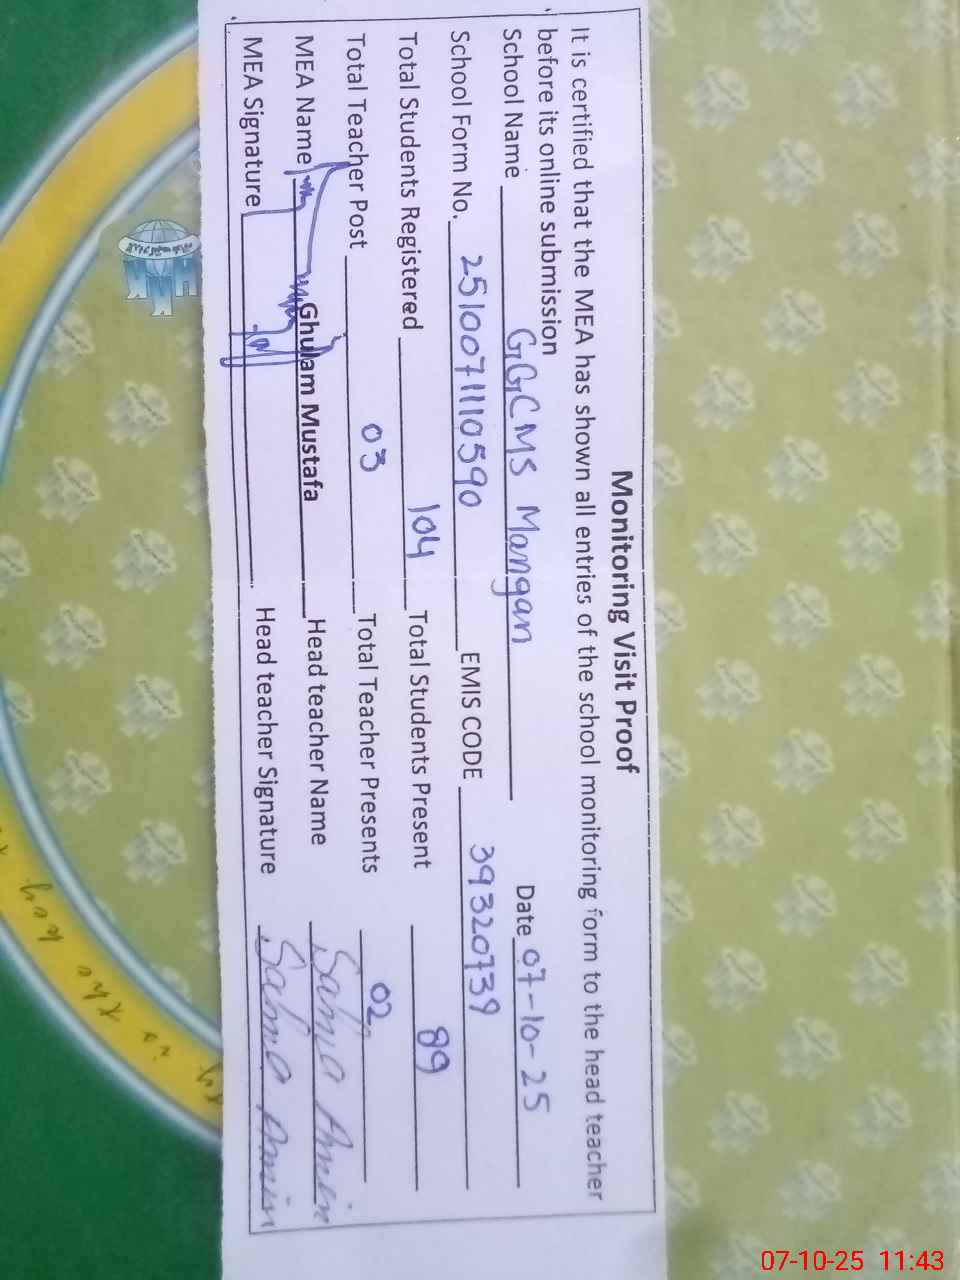 Monitoring Visit Proof
It is certified that the MEA has shown all entries of the school monitoring form to the head teacher
before its online submission
School Name GGCMS Mangan Date 07-10-25
School Form No. 2510071110590 EMIS CODE 39320739
Total Students Registered 104 Total Students Present 89
Total Teacher Post 03 Total Teacher Presents 02
MEA Name Ghulam Mustafa Head teacher Name Salma Amin
MEA Signature Head teacher Signature Salma Amin
07-10-25 11:43